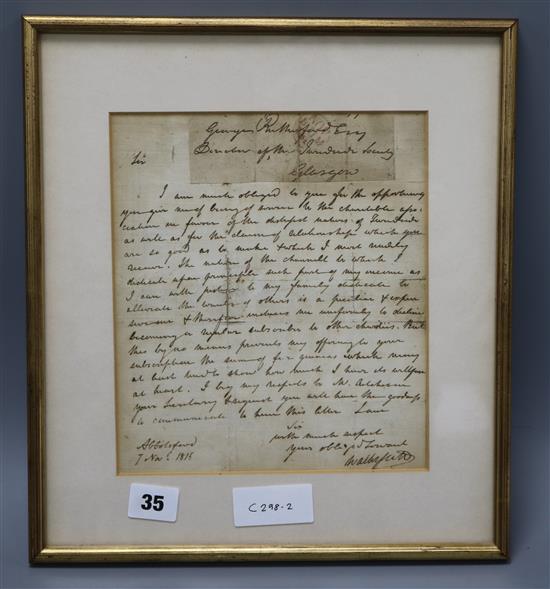 George Rutherford Esq
Director of the Tweedside Society
Glasgow
Sir
I am much obliged to you for the opportunity
you give me of being of service to the charitable asso
ciation in favour of the distressed natives of Tweedside
as well as for the claim of relationship which you
are so good as to make & which I most readily
receive. The nature of the channells to which I
dedicate upon principle such part of my income as
I can with justice to my family dedicate to
alleviate the wants of others is a peculiar & expen
sive one & therefore induces me uniformly to decline
becoming a regular subscriber to other charities. But
this by no means prevents my offering to your
subscription the sum of guineas which may
at least tend to shew how much I have its welfare
at heart. I beg my respects to Mr.
your Secretary & request you will have the goodness
to communicate to him this letter I am
Sir
with much respect
Your obliged Servant
Walter Scott
Abbotsford
7 Nov
35
C298-2